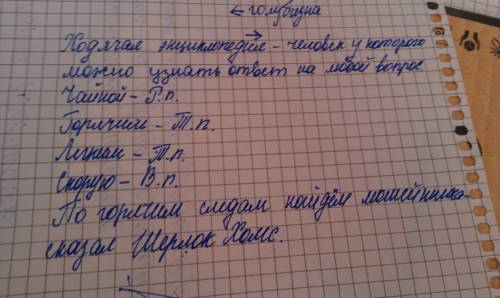 ← голубизна
Ходячая энциклопедия – человек у которого
можно узнать ответ на любой вопрос
Чайной – Р.п.
Горячим – Т.п.
Легкам – Т.п.
Скорую – В.п.
По горячим следам найдём мошейника-
сказал Шерлок Холмс.